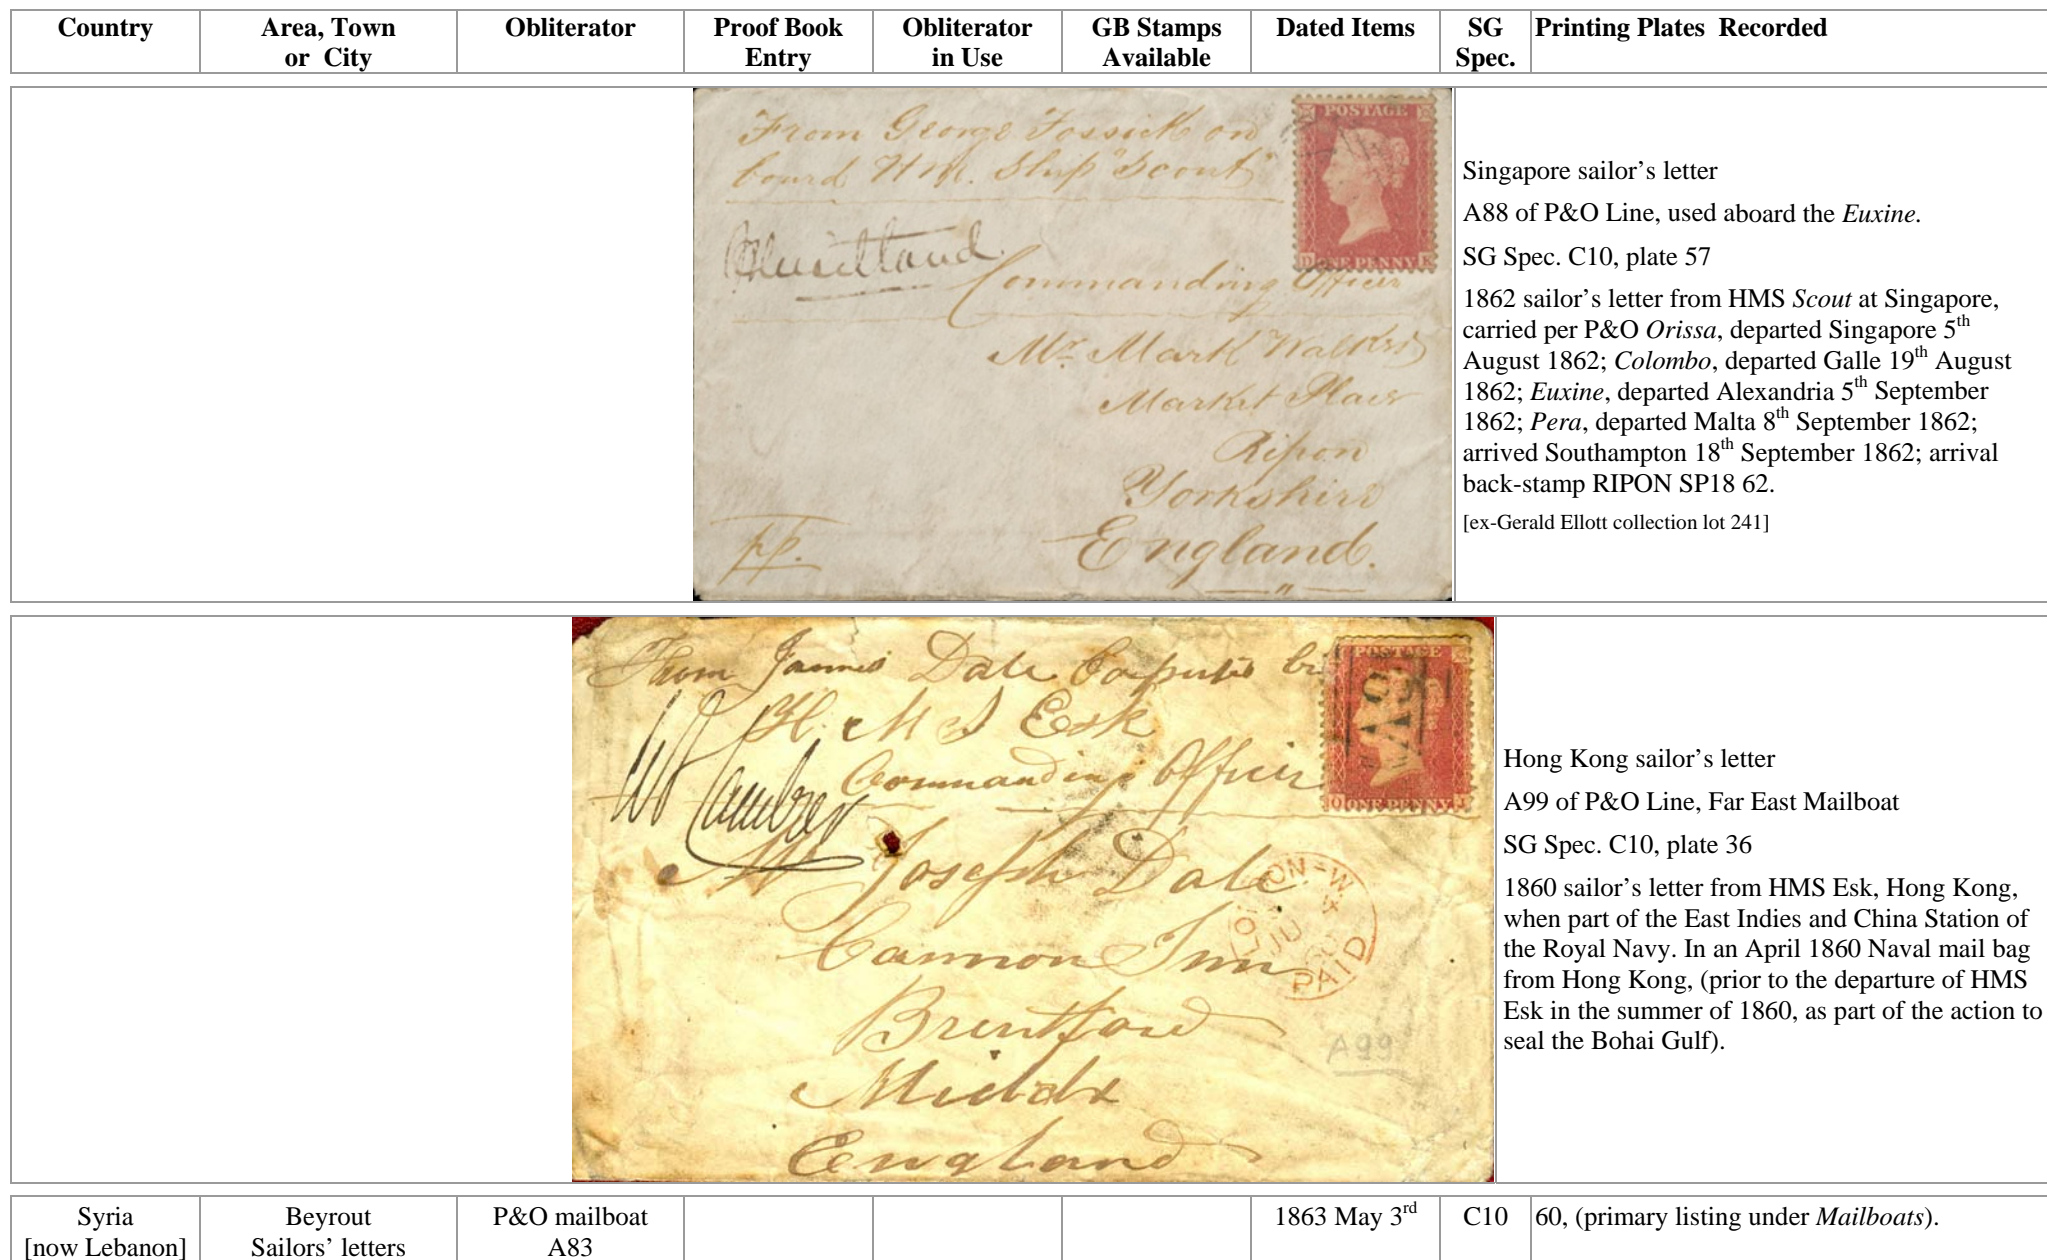 Country Area, Town or City Obliterator Proof Book Entry Obliterator in Use GB Stamps Available Dated Items SG Spec. Printing Plates Recorded
From George Fossick on
board H.M. Ship "Scout"
POSTAGE
D ONE PENNY K
Commanding Officer
Mr. Mark
Market Place
Ripon
Yorkshire
England.
pp.
Singapore sailor’s letter
A88 of P&O Line, used aboard the Euxine.
SG Spec. C10, plate 57
1862 sailor’s letter from HMS Scout at Singapore,
carried per P&O Orissa, departed Singapore 5th
August 1862; Colombo, departed Galle 19th August
1862; Euxine, departed Alexandria 5th September
1862; Pera, departed Malta 8th September 1862;
arrived Southampton 18th September 1862; arrival
back-stamp RIPON SP18 62.
[ex-Gerald Ellott collection lot 241]
From James Dale
H. M S Esk
Commanding Officer
POSTAGE
ONE PENNY
Mr Joseph Dale
Cannon Inn
Brentford
Middx
England
LONDON-W
JU
PAID
A99
Hong Kong sailor’s letter
A99 of P&O Line, Far East Mailboat
SG Spec. C10, plate 36
1860 sailor’s letter from HMS Esk, Hong Kong,
when part of the East Indies and China Station of
the Royal Navy. In an April 1860 Naval mail bag
from Hong Kong, (prior to the departure of HMS
Esk in the summer of 1860, as part of the action to
seal the Bohai Gulf).
Syria [now Lebanon] Beyrout Sailors’ letters P&O mailboat A83 1863 May 3rd C10 60, (primary listing under Mailboats).